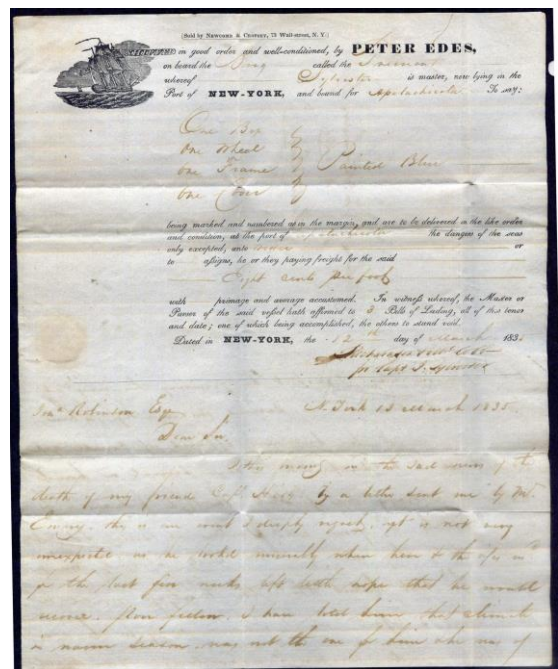 [Sold by Newcomb & Cropsey, 73 Wall-street, N. Y.]
SHIPPED, in good order and well-conditioned, by PETER EDES,
on board the Brig called the
whereof Sylvester is master, now lying in the
Port of NEW-YORK, and bound for Apalachicola To say:
One Box
One Wheel
One Frame Painted Blue
One
being marked and numbered as in the margin, and are to be delivered in the like order
and condition, at the port of Apalachicola the dangers of the seas
only excepted, unto Order or
to assigns, he or they paying freight for the said
Eight cents per foot
with primage and average accustomed. In witness whereof, the Master or
Purser of the said vessel hath affirmed to 3 Bills of Lading, all of this tenor
and date; one of which being accomplished, the others to stand void.
Dated in NEW-YORK, the 12th day of March 183
for Capt Sylvester
Robinson Esq N. York 13 March 1835
Dear Sir
this morng in the sad news of the
death of my friend by a letter sent me by Mr
this is an event I deeply regret, yet is not very
unexpected as he looked miserably when here & the
for the last few weeks left little hope that he would
recover. I have told him that climate
in season was not the one for him &